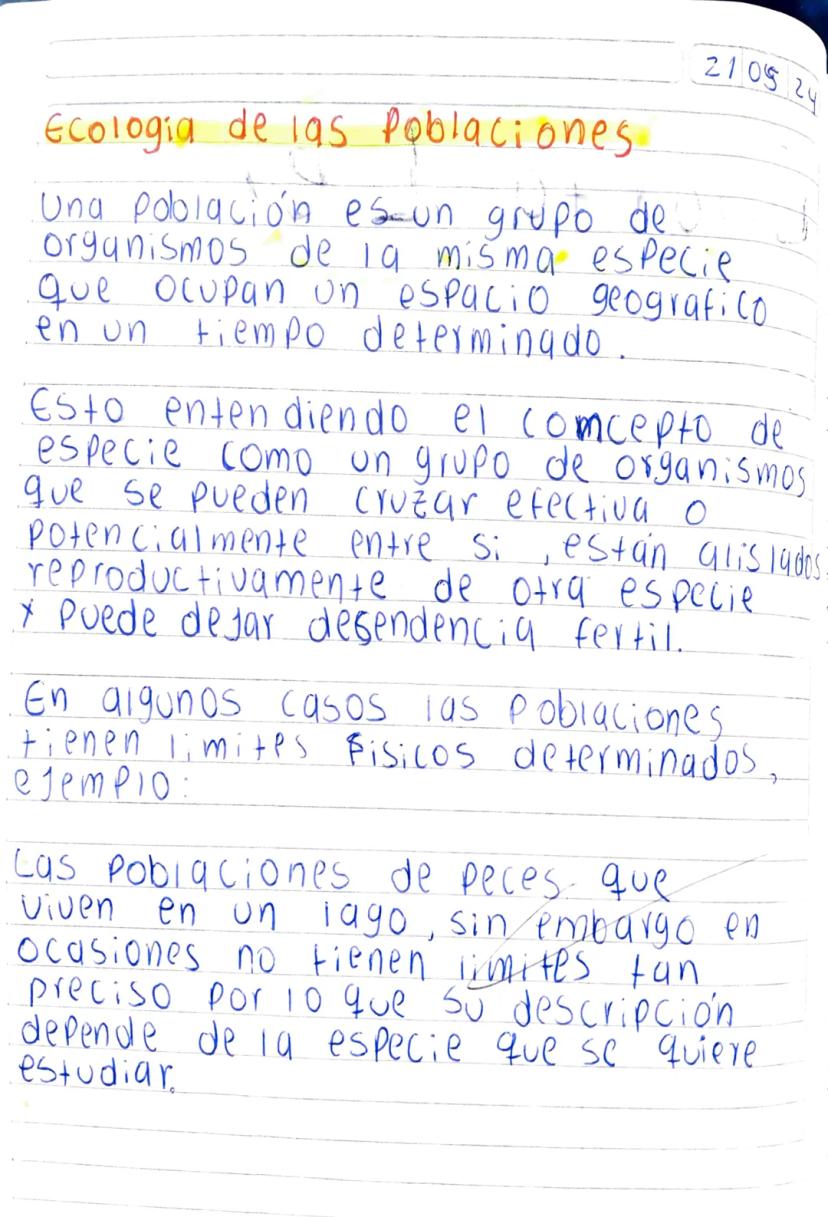 21 05 24
Ecologia de las Poblaciones
Una población es un grupo de
organismos de la misma especie
que ocupan un espacio geografico
en un tiempo determinado.
Esto entendiendo el comcepto de
especie como un grupo de organismos
que se pueden cruzar efectiva o
potencialmente entre si, están alislados
reproductivamente de otra especie
x puede dejar desendencia fertil.
En algunos casos las poblaciones
tienen limites fisicos determinados,
ejemplo:
Las poblaciones de peces que
viven en un lago, sin embargo en
ocasiones no tienen limites tan
preciso por lo que su descripción
depende de la especie que se quiere
estudiar.